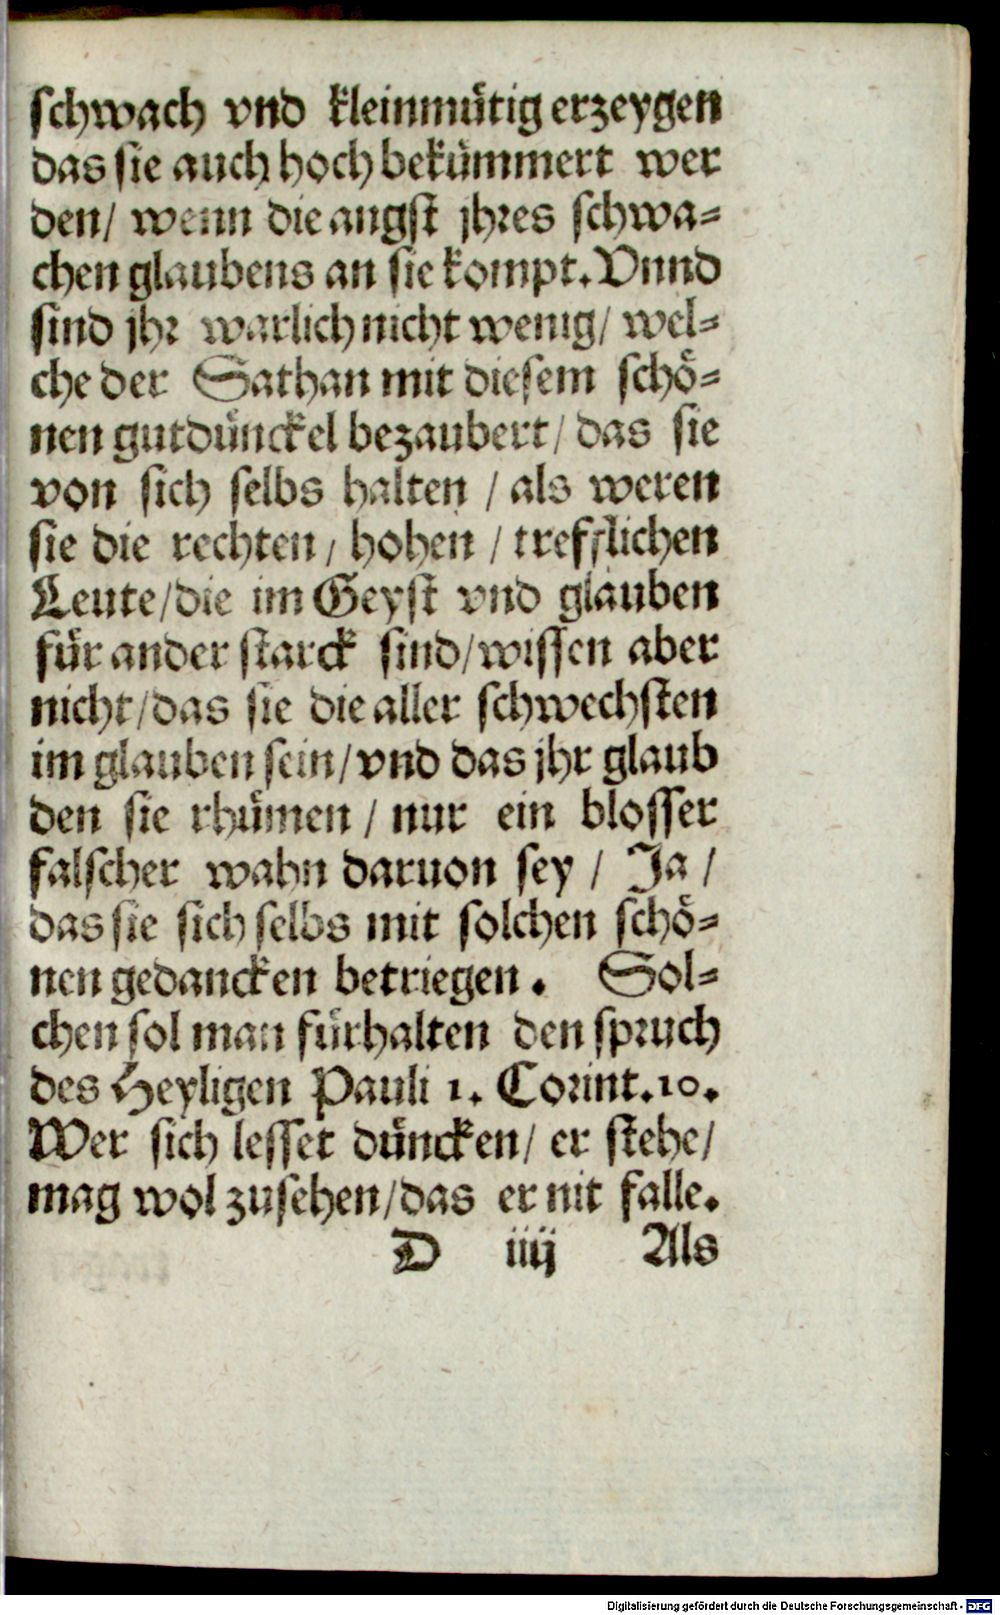 schwach vnd kleinmütig erzeygen
das sie auch hoch bekümmert wer
den/ wenn die angst jhres schwa=
chen glaubens an sie kompt. Vnnd
sind jhr warlich nicht wenig/ wel=
che der Sathan mit diesem schö=
nen gutdünckel bezaubert/ das sie
von sich selbs halten / als weren
sie die rechten/ hohen / trefflichen
Leute/die im Geyst vnd glauben
für ander starck sind/wissen aber
nicht/das sie die aller schwechsten
im glauben sein/vnd das jhr glaub
den sie rhümen / nur ein blosser
falscher wahn daruon sey / Ja /
das sie sich selbs mit solchen schö=
nen gedancken betriegen. Sol=
chen sol man fürhalten den spruch
des Heyligen Pauli 1. Corint.10.
Wer sich lesset düncken/ er stehe/
mag wol zusehen/das er nit falle.
D iiij Als
Digitalisierung gefördert durch die Deutsche Forschungsgemeinschaft - DFG